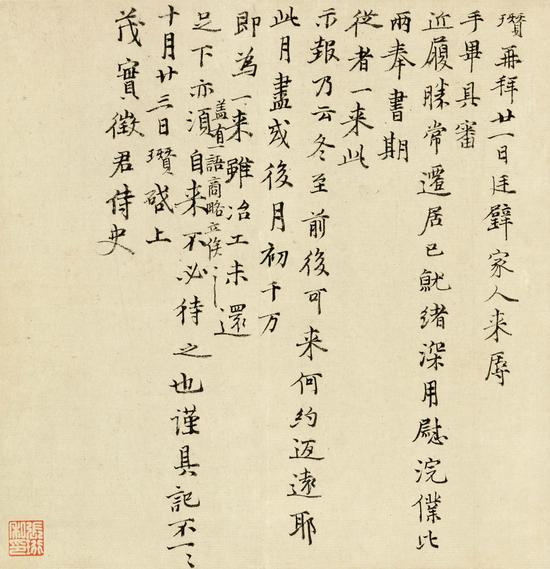 瓚再拜廿一日廷璧家人来辱
手畢具審
近履勝常遷居已就緒深用慰浣僕比
兩奉書期
從者一来此
示報乃云冬至前後可来何約迈遠耶
此月盡或後月初千万
即為一来雖冶工未還
盖有一語商略立俟
足下亦須自来不必待之也谨具記不一一
十月廿三日瓚啓上
茂實徵君侍史